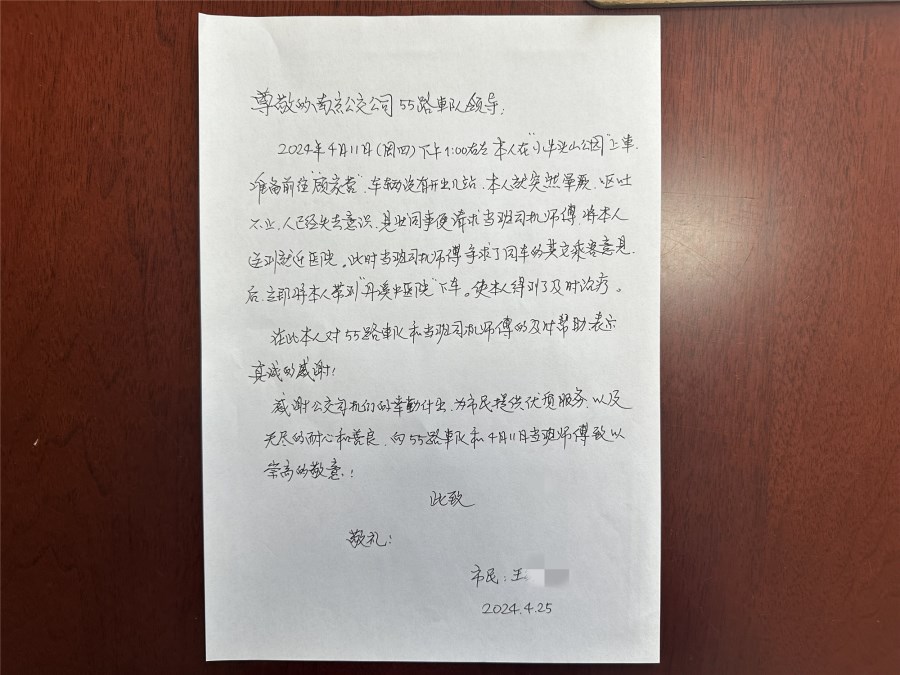 尊敬的南京公交公司55路車队领导:
2024年4月11日(周四)下午1:00左右本人在"小牛头山公园"上车.
准备前往"顾家营".车辆没有开出几站.本人就突然晕厥.呕吐
不止.人已经失去意识.是业同事便请求当班司机师傅.将本人
送到就近医院。此时当班司机师傅争求了同车的其它乘客意见.
后.立即将本人带到"丹溪中医院"下车。使本人得到了及时治疗。
在此本人对55路車队和当班司机师傅的及时帮助表示
真诚的感谢!
感谢公交司机们的辛勤付出.为市民提供优质服务.以及
无尽的耐心和善良.向55路車队和4月11日当班师傅致以
崇高的敬意.!
此致
敬礼:
市民:王
2024.4.25